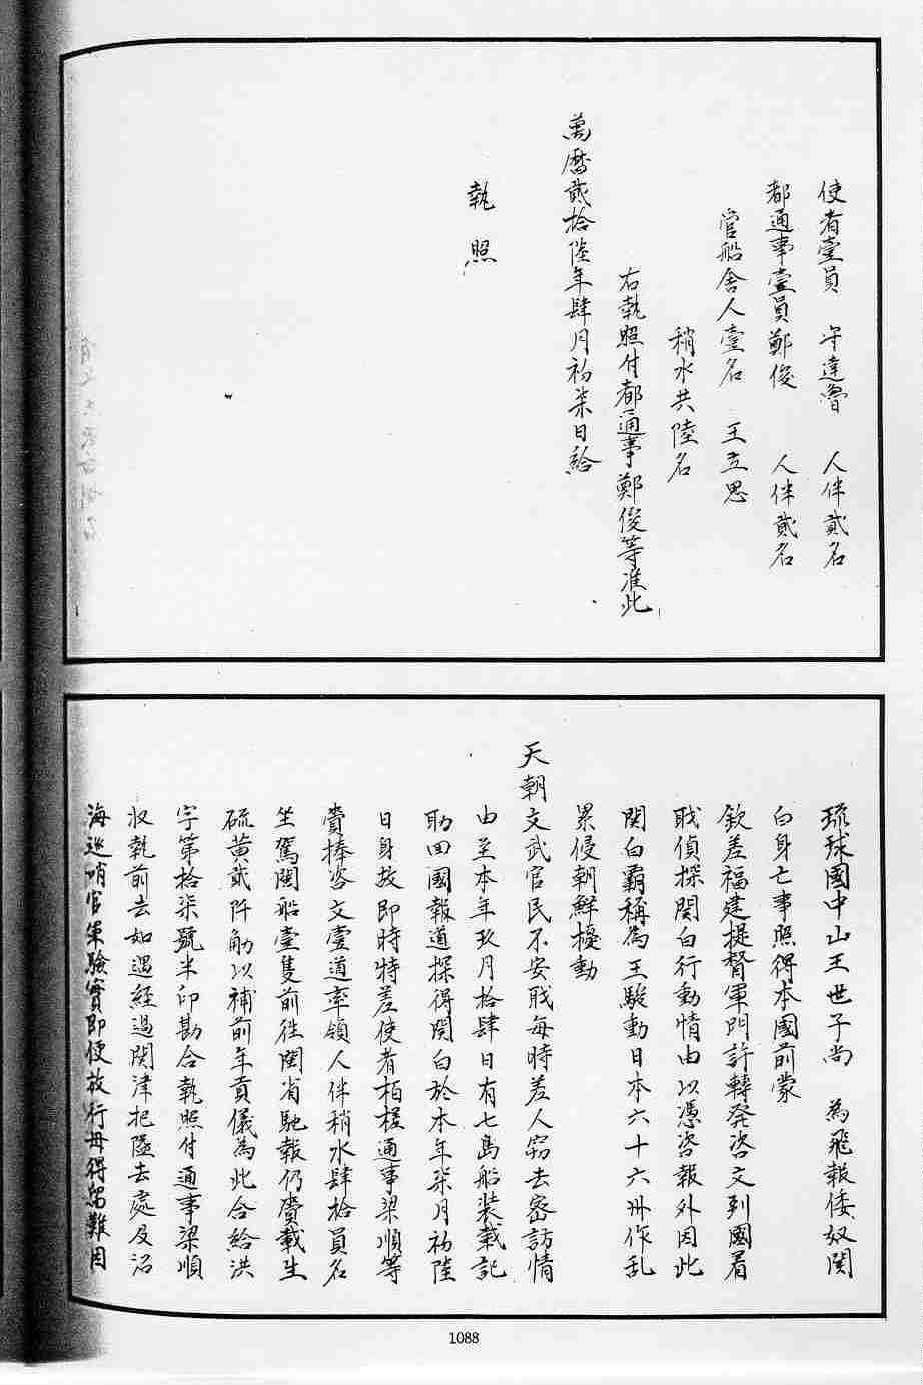 使者壹員　守達魯　人伴貳名
都通事壹員鄭俊　人伴貳名
官船舍人壹名　王立思
稍水共陸名
右執照付都通事鄭俊等准此
萬曆貳拾陸年肆月初柒日給
執照
琉球國中山王世子尚　為飛報倭奴関
白身亡事照得本國前蒙
欽差福建提督軍門許轉發咨文到國着
戝偵探関白行動情由以憑咨報外因此
関白霸稱為王駿動日本六十六州作乱
累侵朝鮮擾動
天朝文武官民不安戝每時差人窃去密訪情
由至本年玖月拾肆日有七島船裝載記
助回國報道探得関白於本年柒月初陸
日身故即時特差使者栢㮤通事梁順等
賫捧咨文壹道率領人伴稍水肆拾員名
坐駕閩船壹隻前徃閩省馳報仍賫載生
硫黃貳阡觔以補前年貢儀為此合給洪
字第拾柒號半印勘合執照付通事梁順
收執前去如遇經過関津把隘去處及沿
海巡哨官軍驗實即便放行毋得留難因
1088